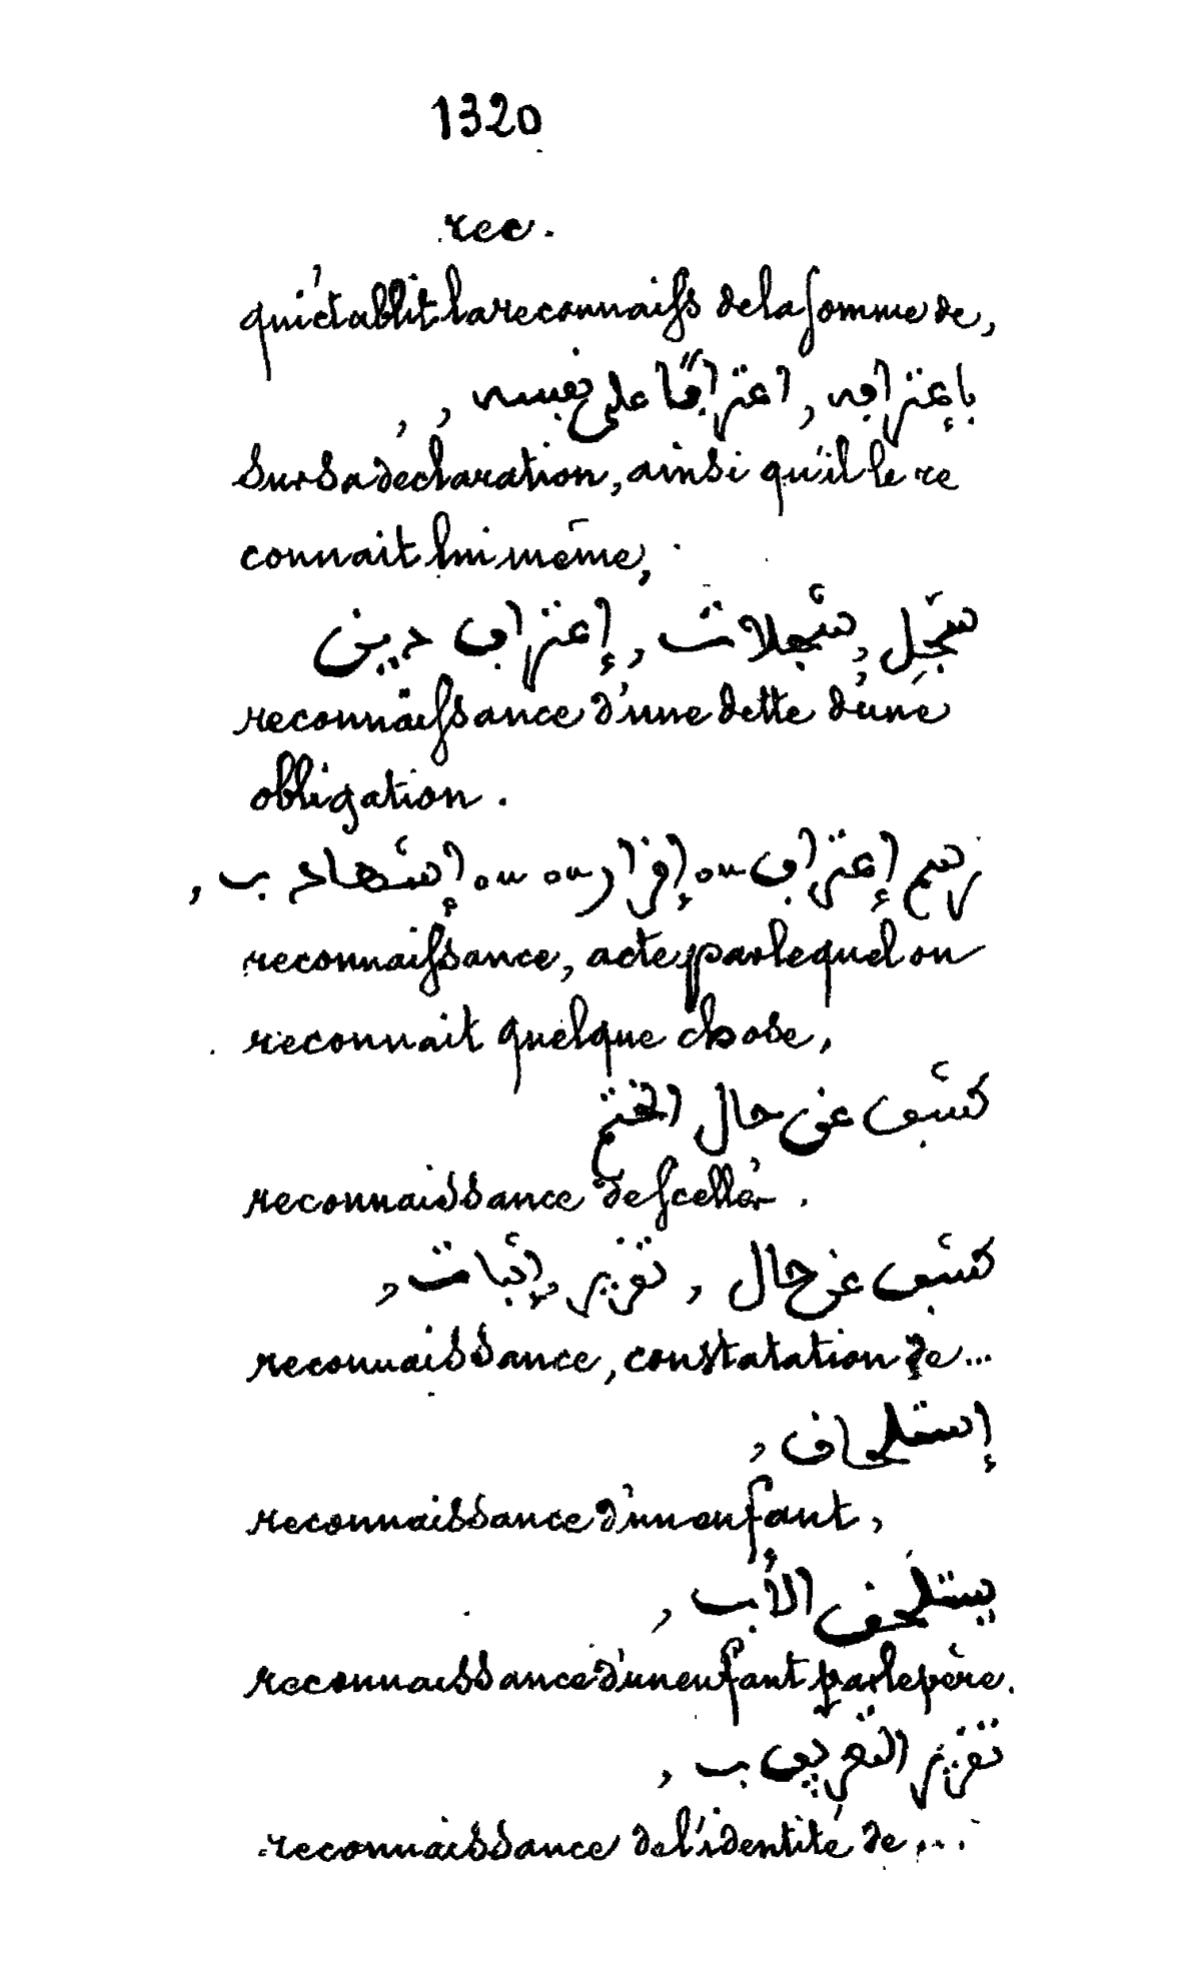 1320
rec.
qui établit la reconnaiss de la somme de,
بإعترافه, اعترافًا على نفسه , ,
Sur sa déclaration, ainsi qu'il le re
connait lui même,
سَجِّل, سَجلات, إعتراف دين
reconnaissance d'une dette d'une
obligation.
رسم إعتراف ou إقرار ou إشهاد ب,
reconnaissance, acte par lequel on
reconnait quelque chose,
كشف عن حال الختم
reconnaissance de scellés.
كشف عن حال , تقرير, إثبات,
reconnaissance, constatation de...
إستلحاق,
reconnaissance d'un enfant,
يستلحق الأب,
reconnaissance d'un enfant par le père.
تقرير التعريف ب,
reconnaissance de l'identité de....